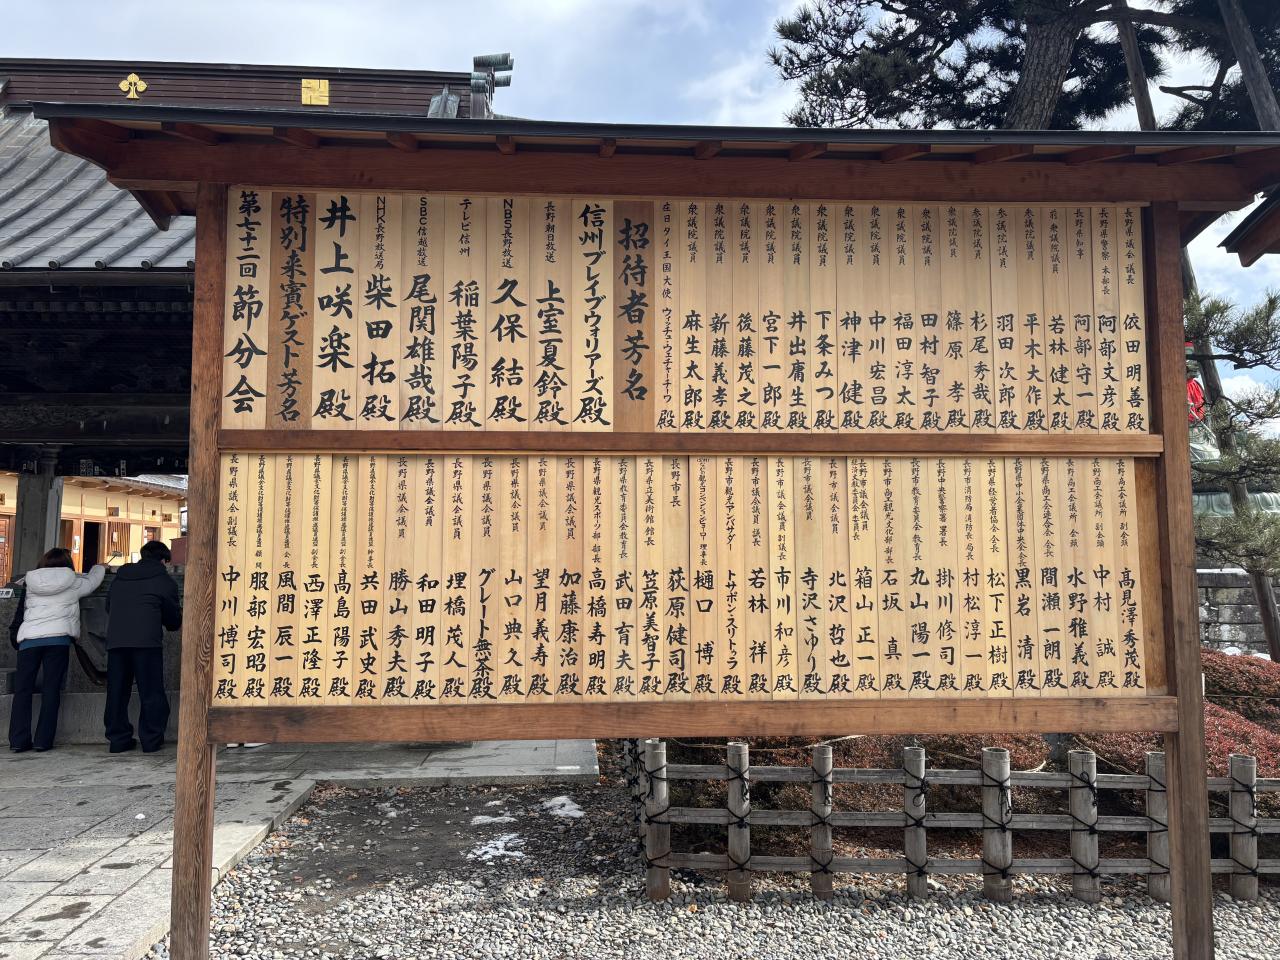 第七十二回 節分会
特別来賓ゲスト芳名
井上咲楽 殿
NHK長野放送局 柴田拓 殿
SBC信越放送 尾関雄哉 殿
テレビ信州 稲葉陽子 殿
NBS長野放送 久保結 殿
長野朝日放送 上室夏鈴 殿
信州ブレイブウォリアーズ 殿
招待者芳名
在日タイ王国大使 ウィッチュ・ウェチャーチーワ 殿
衆議院議員 麻生太郎 殿
衆議院議員 新藤義孝 殿
衆議院議員 後藤茂之 殿
衆議院議員 宮下一郎 殿
衆議院議員 井出庸生 殿
衆議院議員 下条みつ 殿
衆議院議員 神津健 殿
衆議院議員 中川宏昌 殿
衆議院議員 福田淳太 殿
衆議院議員 田村智子 殿
衆議院議員 篠原孝 殿
参議院議員 杉尾秀哉 殿
参議院議員 羽田次郎 殿
参議院議員 平木大作 殿
前衆議院議員 若林健太 殿
長野県知事 阿部守一 殿
長野県警察本部長 阿部文彦 殿
長野県議会議長 依田明善 殿
長野県議会副議長 中川博司 殿
服部宏昭 殿
風間辰一 殿
西澤正隆 殿
髙島陽子 殿
共田武史 殿
長野県議会議員 勝山秀夫 殿
長野県議会議員 和田明子 殿
長野県議会議員 埋橋茂人 殿
長野県議会議員 グレート無茶 殿
長野県議会議員 山口典久 殿
長野県議会議員 望月義寿 殿
長野県議会議員 加藤康治 殿
長野県観光スポーツ部 部長 高橋寿明 殿
長野県教育委員会教育長 武田育夫 殿
長野県立美術館 館長 笠原美智子 殿
長野市長 荻原健司 殿
ながの観光コンベンションビューロー 理事長 樋口博 殿
長野市観光アンバサダー トサポン・スリトゥラ 殿
長野市議会議員 議長 若林祥 殿
長野市議会議員 副議長 市川和彦 殿
長野市議会議員 寺沢さゆり 殿
長野市議会議員 北沢哲也 殿
長野市議会議員 経済文教委員会委員長 箱山正一 殿
長野市商工観光文化部 部長 石坂真 殿
長野市教育委員会教育長 丸山陽一 殿
長野中央警察署 署長 掛川修司 殿
長野市消防局 消防長・局長 村松淳一 殿
長野県経営者協会会長 松下正樹 殿
長野県中小企業団体中央会会長 黒岩清 殿
長野県商工会連合会会長 間瀬一朗 殿
長野商工会議所 会頭 水野雅義 殿
長野商工会議所 副会頭 中村誠 殿
長野商工会議所 副会頭 高見澤秀茂 殿